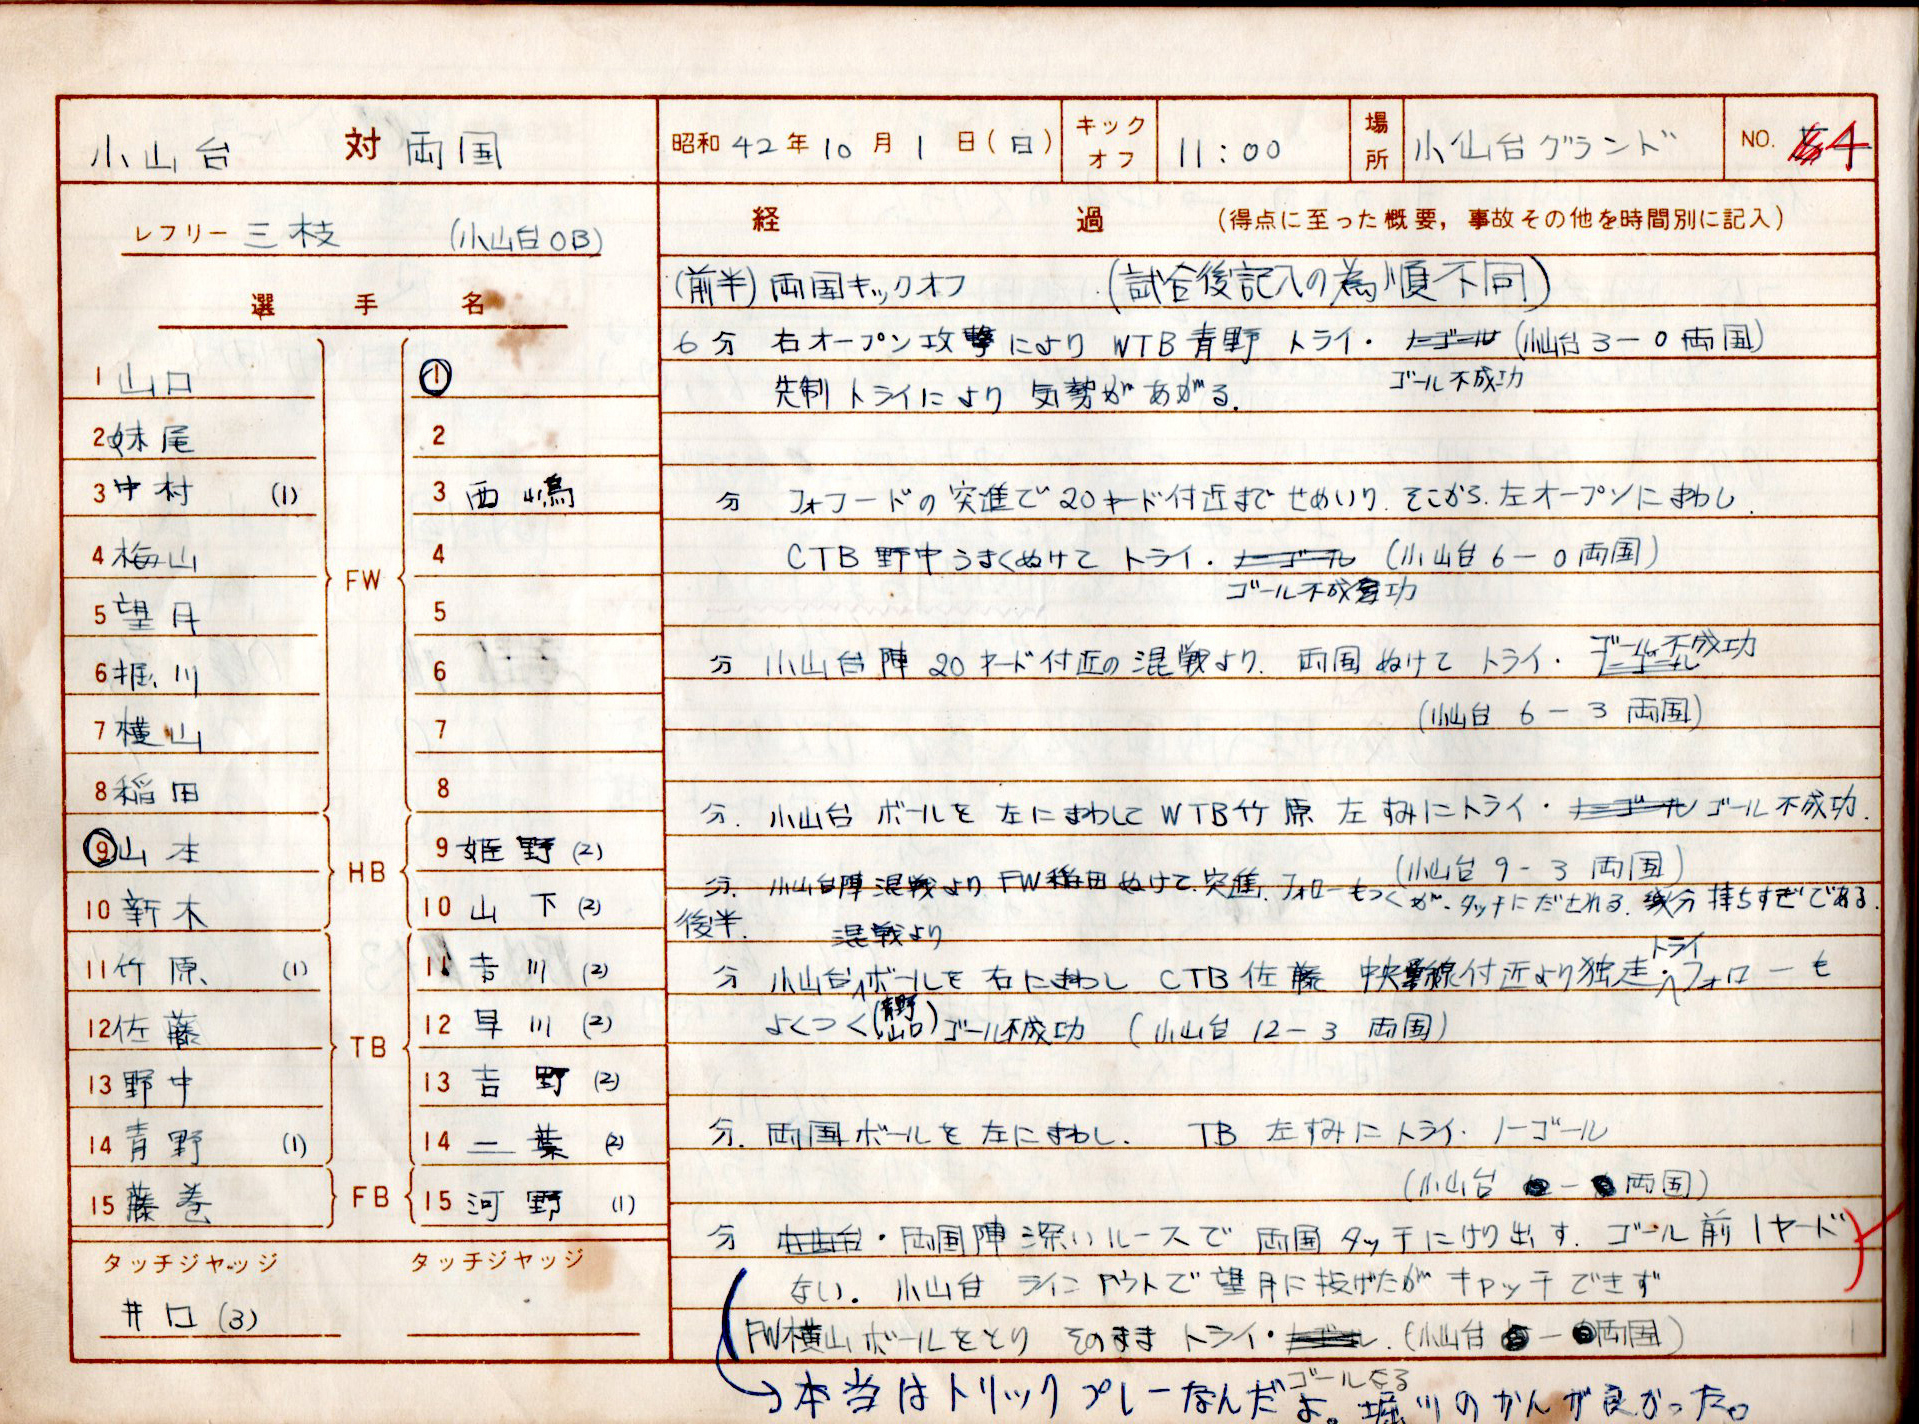 小山台 対 両国
昭和 42 年 10 月 1 日 (日) キックオフ 11:00 場所 小山台グランド NO. 4
レフリー 三枝 (小山台OB)
選手名
1 山口
2 妹尾
3 中村 (1)
4 梅山
5 望月
6 堀川
7 横山
8 稲田
9 山本
10 新木
11 竹原 (1)
12 佐藤
13 野中
14 青野 (1)
15 藤巻
FW
HB
TB
FB
1
2
3 西嶋
4
5
6
7
8
9 姫野 (2)
10 山下 (2)
11 吉川 (2)
12 早川 (2)
13 吉野 (2)
14 二葉 (2)
15 河野 (1)
タッチジャッジ タッチジャッジ
井口 (3)
経過 (得点に至った概要,事故その他を時間別に記入)
(前半) 両国キックオフ (試合後記入の為順不同)
6分 右オープン攻撃により WTB青野 トライ・ノーゴール (小山台 3−0 両国)
ゴール不成功
先制トライにより 気勢があがる.
分 フォワードの突進で20ヤード付近まで せめいり. そこから. 左オープンにまわし.
CTB 野中うまくぬけて トライ・ノーゴール (小山台 6−0 両国)
ゴール不成功
分 小山台陣 20ヤード付近の混戦より. 両国ぬけて トライ・ノーゴール ゴール不成功
(小山台 6−3 両国)
分. 小山台 ボールを 左にまわして WTB竹原 左すみにトライ・ノーゴール ゴール不成功.
(小山台 9−3 両国)
分. 小山台陣 混戦より FW稲田ぬけて. 突進. フォローもつくが. タッチにだされる. 幾分持ちすぎである.
後半. 混戦より
分 小山台ボールを 右にまわし CTB佐藤 中央線付近より独走・トライ フォローも
よくつく(青野 山口) ゴール不成功 (小山台 12−3 両国)
分. 両国ボールを 左にまわし. TB 左すみにトライ・ノーゴール
(小山台 − 両国)
分 小山台・両国陣 深いルースで 両国 タッチにけり出す. ゴール前 1ヤード
ない. 小山台 ラインアウトで望月に投げたが キャッチできず
FW横山ボールをとり そのまま トライ・ノーゴール. (小山台 − 両国)
ゴールなる
→本当はトリックプレーなんだよ。堀川のかんが良かった。